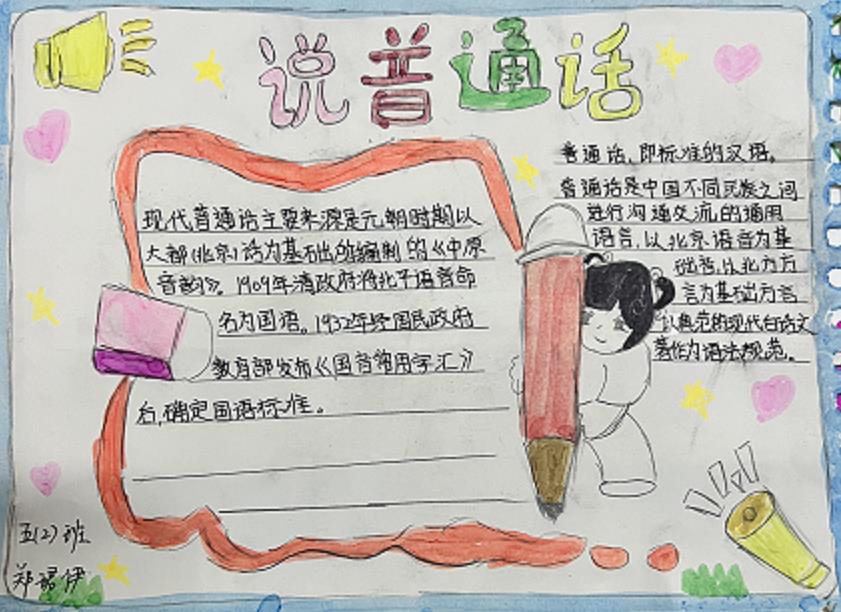 说普通话
现代普通话主要来源是元朝时期以
大都(北京)话为基础的编制的《中原
音韵》。1909年清政府将北平语音命
名为国语。1932年经国民政府
教育部发布《国音常用字汇》
后,确定国语标准。
普通话,即标准的汉语。
普通话是中国不同民族之间
进行沟通交流的通用
语言,以北京语音为基
础音,以北方方
言为基础方言
以典范的现代白话文
著作为语法规范。
五(2)班
郑珺伊